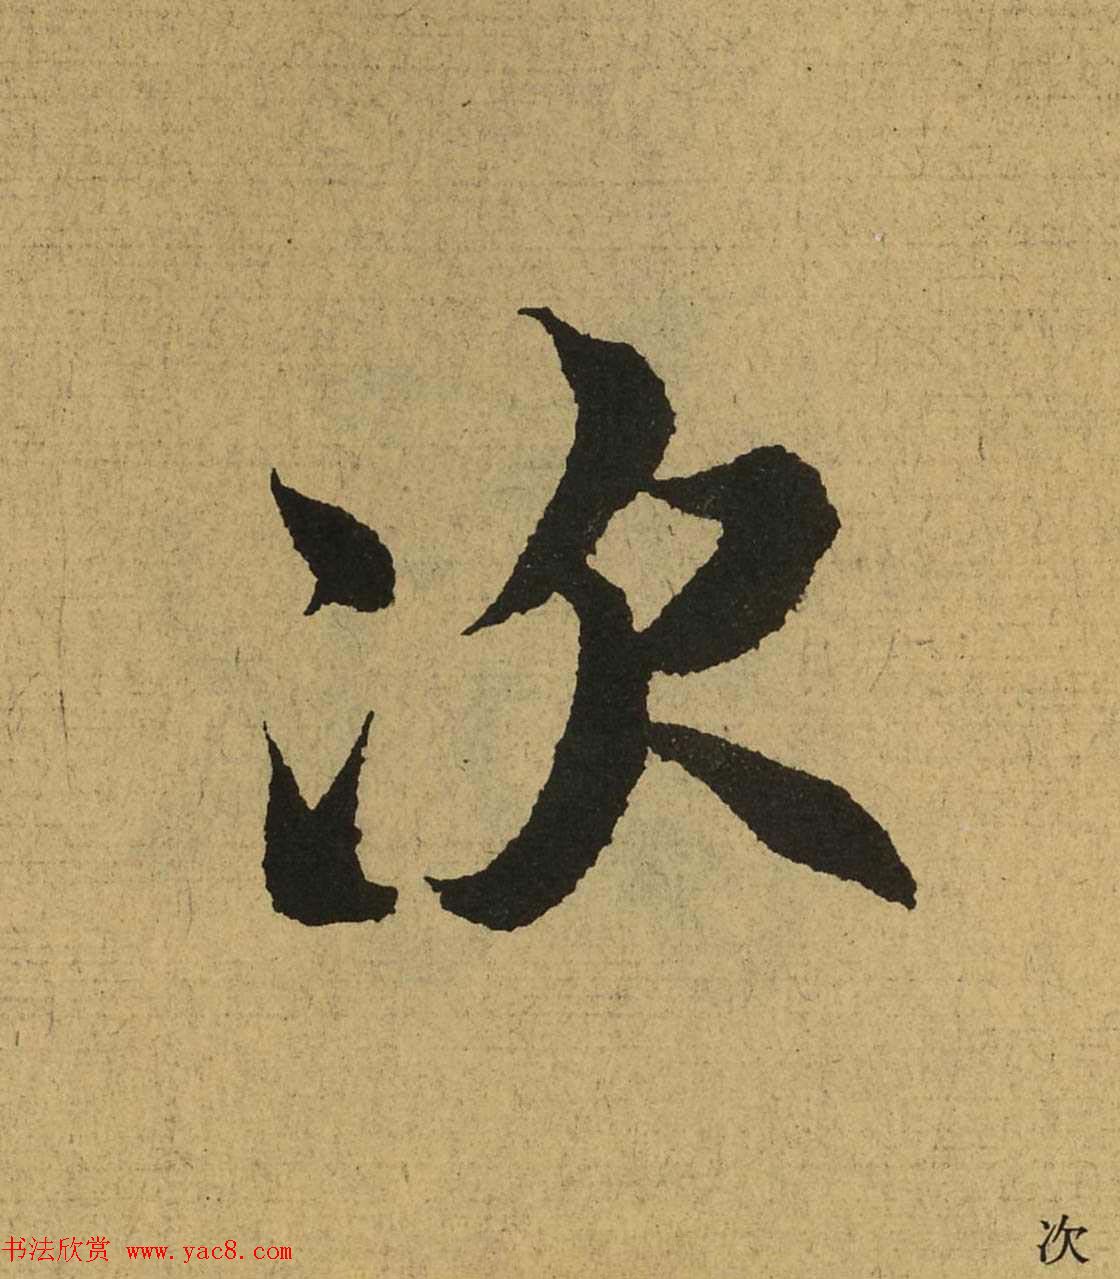 次
书法欣赏 www.yac8.com
次